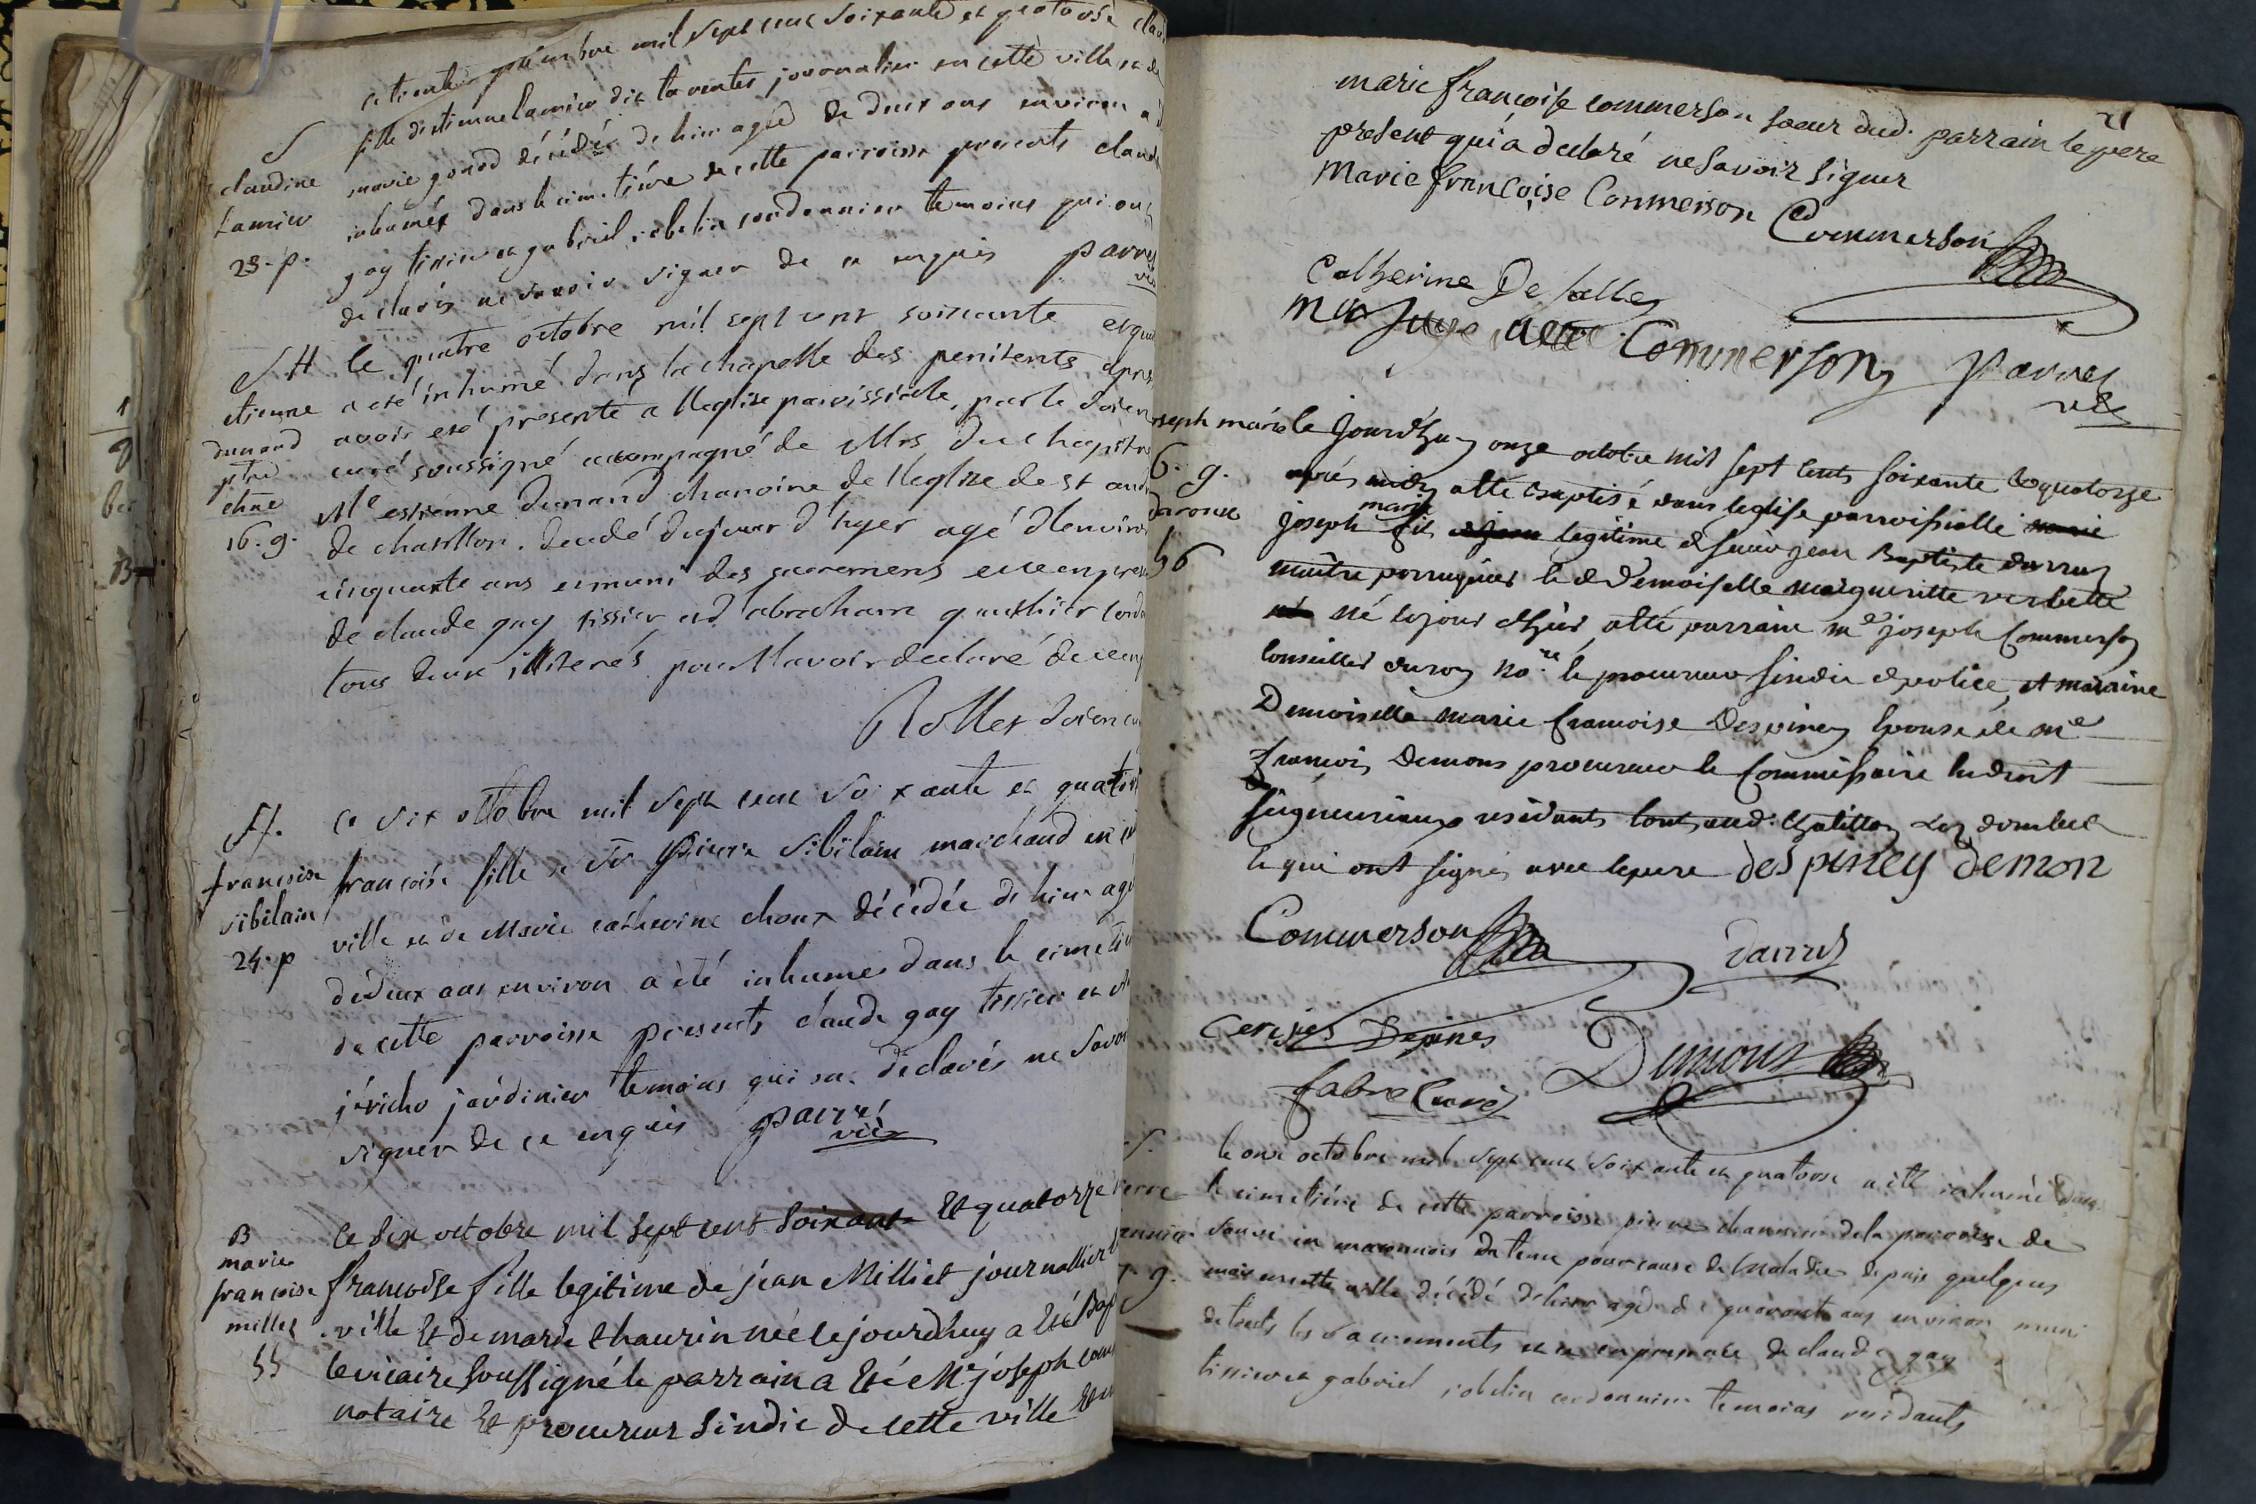 ce trente septembre mil sept cent soixante et quatorse claudine
fille d'estienne Lamier dit la ventes journalier en cette ville et de
marie gonod décédée de hier agée de deux ans environ a
inhumée dans le cimetière de cette parroisse presents claude
gay tissier et gabriel cordonnier temoins qui ont
declarés ne savoir signer de ce enquis parret
vic
S
claudine
Lamier
23. p.
S H le quatre octobre mil sept cent soixante et qua
a eté inhumé dans la chapelle des penitents apres
avoir eté presenté a l'eglise paroissiale, par le doien
curé soussigné accompagné de Mrs du chapitre
Mre estienne dunand chanoine de l'eglise de st andré
de chatillon. decedé du jour d'hyer agé d'environ
cinquante ans et muni des sacremens et en presence
de claude gay tissier et d'abraham gauthier cordo
tous deux illiterés pour l'avoir declaré de ce enq
Rollet doien cu
etienne
dunand
ptre
chne
16. g.
ce six octobre mil sept cent soixante et quatorse
françoise fille de Sr pierre sibilain marchand en
ville et de Marie catherine choux décédée de hier agée
de deux ans environ a été inhumée dans le cimetière
de cette parroisse presents claude gay tissier et
jéricho jardinier temoins qui ont declarés ne savoir
signer de ce enquis parret
vic
S.
françoise
sibilain
24. p
ce six octobre mil sept cent soixante et quatorze
françoise fille legitime de jean Milliet journallier
ville et de marie Chaurin née le jourdhuy a été Bap
le vicaire soussigné le parrain a été Mr joseph com
notaire et procureur sindic de cette ville
B
marie
françoise
millet
55
21
marie françoise commerson soeur dud. parrain le pere
present qui a declaré ne savoir signer
Marie françoise Commerson Commerson
Catherine De salles
Commerson parret
vic
le jourd'huy onze octobre mil sept cents soixante et quatorze
après midy a été baptisé dans leglise parroissialle
marie
joseph fils legitime de sieur jean Baptiste darruz
maître perruquier et de Demoiselle margueritte verbette
né le jour d'hier, a été parrain me joseph Commerson
conseiller du roy nore et procureur sindic de police, et maraine
Demoiselle marie françoise Despiney epouse de me
françois Demons procureur et Commissaire en droit
seigneuriaux residants tous aud. Chatillon les dombes
et qui ont signés avec le pere despiney demon
Commerson darruz
Demons
fabre Curé
joseph marie
6. g.
darouse
56
le onze octobre mil sept cent soixante et quatorse a été inhumé dans
le cimetière de cette parroisse pierre de la parroisse de
en maconnois detenu pour cause de maladie depuis quelques
mois en cette ville décédé de hier agé de quarante ans environ muni
de touts les sacrements et en presence de claude gay
tissier et gabriel cordonnier temoins residants